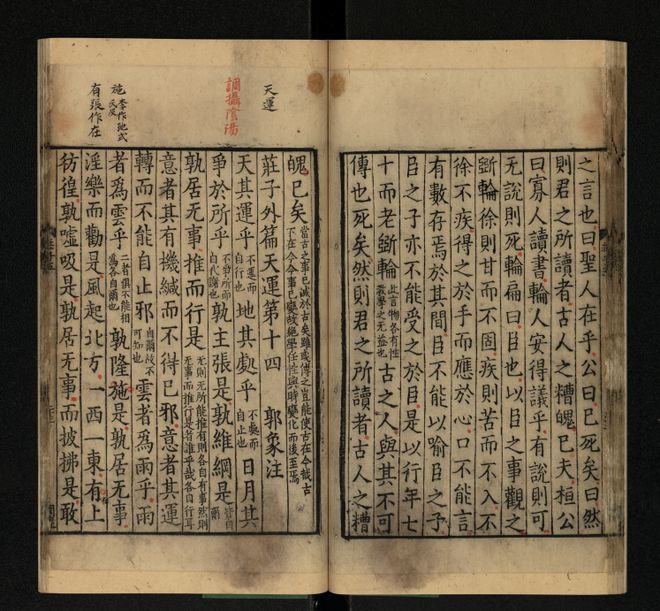 之言也曰聖人在乎公曰已死矣曰然
則君之所讀者古人之糟魄已夫桓公
曰寡人讀書輪人安得議乎有說則可
无說則死輪扁曰臣也以臣之事觀之
斲輪徐則甘而不固疾則苦而不入不
徐不疾得之於手而應於心口不能言
有數存焉於其間臣不能以喻臣之子
臣之子亦不能受之於臣是以行年七
十而老斲輪此言物各有性教學之无益也古之人與其不可
傳也死矣然則君之所讀者古人之糟
天運
調攝陰陽
施李作弛式氏反
有張作在
魄已矣當古之事已滅於古矣雖或傳之豈能使古在今哉古不在今今事已變故絕學任性與時變化而後至焉
莊子外篇天運第十四 郭象注
天其運乎不運而自行也地其處乎不處而自止也日月其
爭於所乎不爭所而自代謝也孰主張是孰維綱是皆自爾
孰居无事推而行是无則无所能推有則各自有事然則无事而推行是者誰乎哉各自行耳
意者其有機緘而不得已邪意者其運
轉而不能自止邪自爾故不可知也雲者為雨乎雨
者為雲乎二者俱不能相為各自爾也孰隆施是孰居无事
淫樂而勸是風起北方一西一東有上
彷徨孰噓吸是孰居无事而披拂是敢